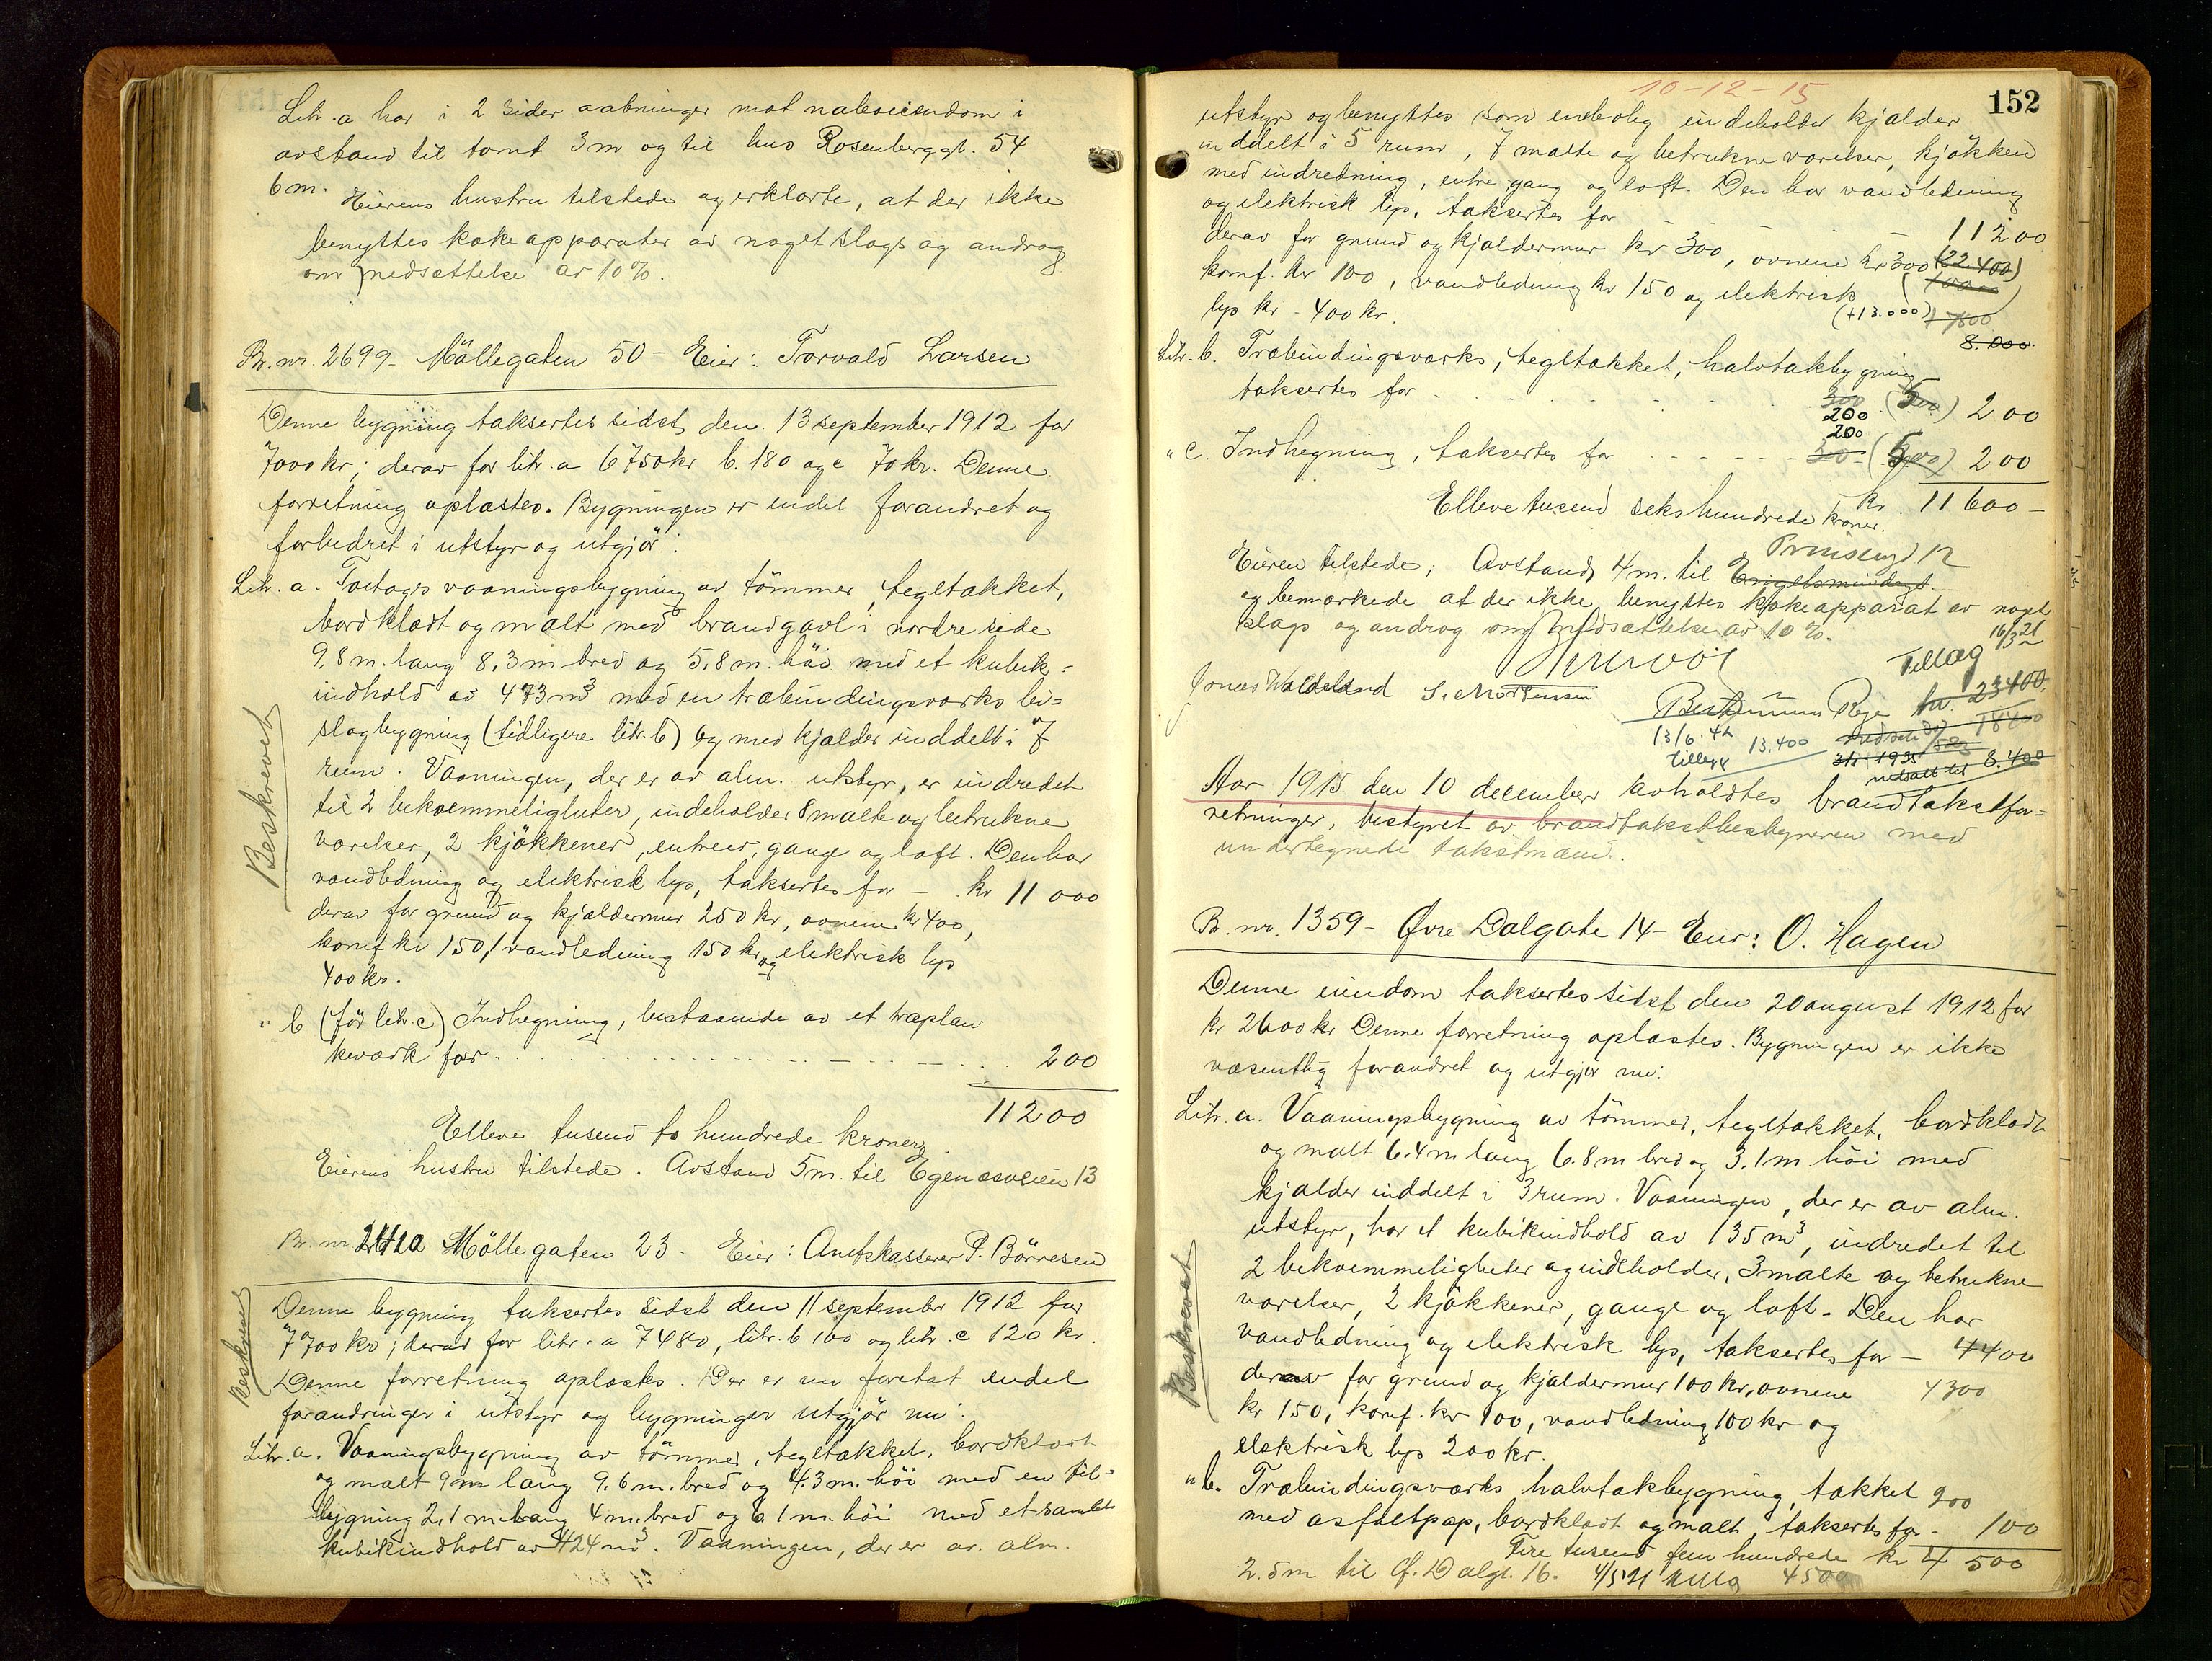 Litr. a har i 2 sider aabninger mot naboeiendom i
avstand til tomt 3 m og til hus Rosenberggt. 54
6 m.
Eierens hustru tilstede og erklærte, at der ikke
benyttes kokeapparater av noget slags og androg
om nedsættelse av 10%.
Br. nr. 2699 - Möllegaten 50 - Eier: Torvald Larsen
Denne bygning taksertes sidst den 13 september 1912 for
7000 kr; derav for litr. a 6750 kr b. 180 og c 70 kr. Denne
forretning oplæstes. Bygningen er endel forandret og
forbedret i utstyr og utgjör:
Beskrevet
Litr. a. Toetages vaaningsbygning av tömmer, tegltækket,
bordklædt og malt med brandgavl i nordre side
9,8 m. lang 8,3 m bred og 5,8 m. höi med et kubik-
indhold av 473 m³ med en træbindingsværks bi-
slagbygning (tidligere litr. b) og med kjælder inddelt i 7
rum. Vaaningen, der er av alm. utstyr, er indredet
til 2 bekvemmeligheter, indeholder 8 malte og betrukne
værelser, 2 kjökkener, entreer, gange og loft. Den har
vandledning og elektrisk lys, taksertes for - kr 11 000
derav for grund og kjældermur 250 kr, ovnene kr 400,
komf kr 150, vandledning 150 kr og elektrisk lys
400 kr.
" b (för litr. c) Indhegning, bestaaende av et træplan
keværk for . . . . . 200
11200
Elleve tusend to hundrede kroner
Eierens hustru tilstede. Avstand 5 m. til Egenæsveien 13
Br. nr 2410 Möllegaten 23 - Eier: Amtskasserer P. Börresen
Beskrevet
Denne bygning taksertes sidst den 11 september 1912 for
7700 kr; derav for litr. a 7480, litr. b 100 og litr. c 120 kr.
Denne forretning oplæstes. Der er nu foretat endel
forandringer i utstyr og bygningen utgjör nu:
Litr. a. Vaaningsbygning av tömmer, tegltækket, bordklædt
og malt 9 m lang 9.6 m. bred og 4.3 m. höi med en til-
bygning 2,1 m lang 4 m. bred og 6.1 m. höi med et samlet
kubikindhold av 424 m³. Vaaningen, der er av alm.
10-12-15
152
utstyr og benyttes som enebolig indeholder kjælder
inddelt i 5 rum, 7 malte og betrukne værelser, kjökken
med indredning, entre, gang og loft. Den har vandledning
og elektrisk lys, taksertes for 11200
derav for grund og kjældermur kr 300, ovnene kr 300 (22.400)
komf. kr 100, vandledning kr 150 og elektrisk
lys kr - 400 kr. (+13.000)
8.000
Litr. b. Træbindingsværks, tegltækket, halvtakbygning
taksertes for 300 (500) 200
200
200
" c. Indhegning, taksertes for 300 (500) 200
kr. 11600 -
Elleve tusend sekshundrede kroner.
Prinsensgt 12
Eieren tilstede; Avstand 4 m. til Engelsmindegt
og bemærkede at der ikke benyttes kokeapparat av noget
slags og androg om nedsættelse av 10%.
Tillæg 16/3 21
Jonas Waldeland S. Mortensen
kr. 23400
13/6.42 13.400
Tillegg
1935
nedsatt til 8.400
Aar 1915 den 10 december avholdtes brandtakstfor-
retninger, bestyret av brandtakstbestyreren med
undertegnede takstmænd.
Br. nr. 1359 - Øvre Dalgate 14 - Eier: O. Hagen
Denne eiendom taksertes sidst den 20 august 1912 for
kr 2600 kr Denne forretning oplæstes. Bygningen er ikke
væsentlig forandret og utgjör nu:
Beskrevet
Litr. a. Vaaningsbygning av tömmer, tegltækket, bordklædt
og malt 6.4 m lang 6.8 m bred og 3.1 m. höi med
kjælder inddelt i 3 rum. Vaaningen, der er av alm.
utstyr, har et kubikindhold av 135 m³, indredet til
2 bekvemmeligheter og indeholder, 3 malte og betrukne
værelser, 2 kjökkener, gange og loft. Den har
vandledning og elektrisk lys, taksertes for - 4400
derav for grund og kjældermur 100 kr, ovnene 4300
kr 150, komf. kr 100, vandledning 100 kr og
elektrisk lys 200 kr.
" b. Træbindingsværks halvtakbygning, tækket 200
med asfaltpap, bordklædt og malt, taksertes for - 100
Fire tusend fem hundrede kr 4 500
2.5 m til Ø. Dalgt. 16. 4/5 21 4500